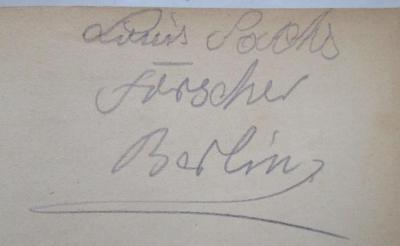 Louis Sachs
Forscher
Berlin